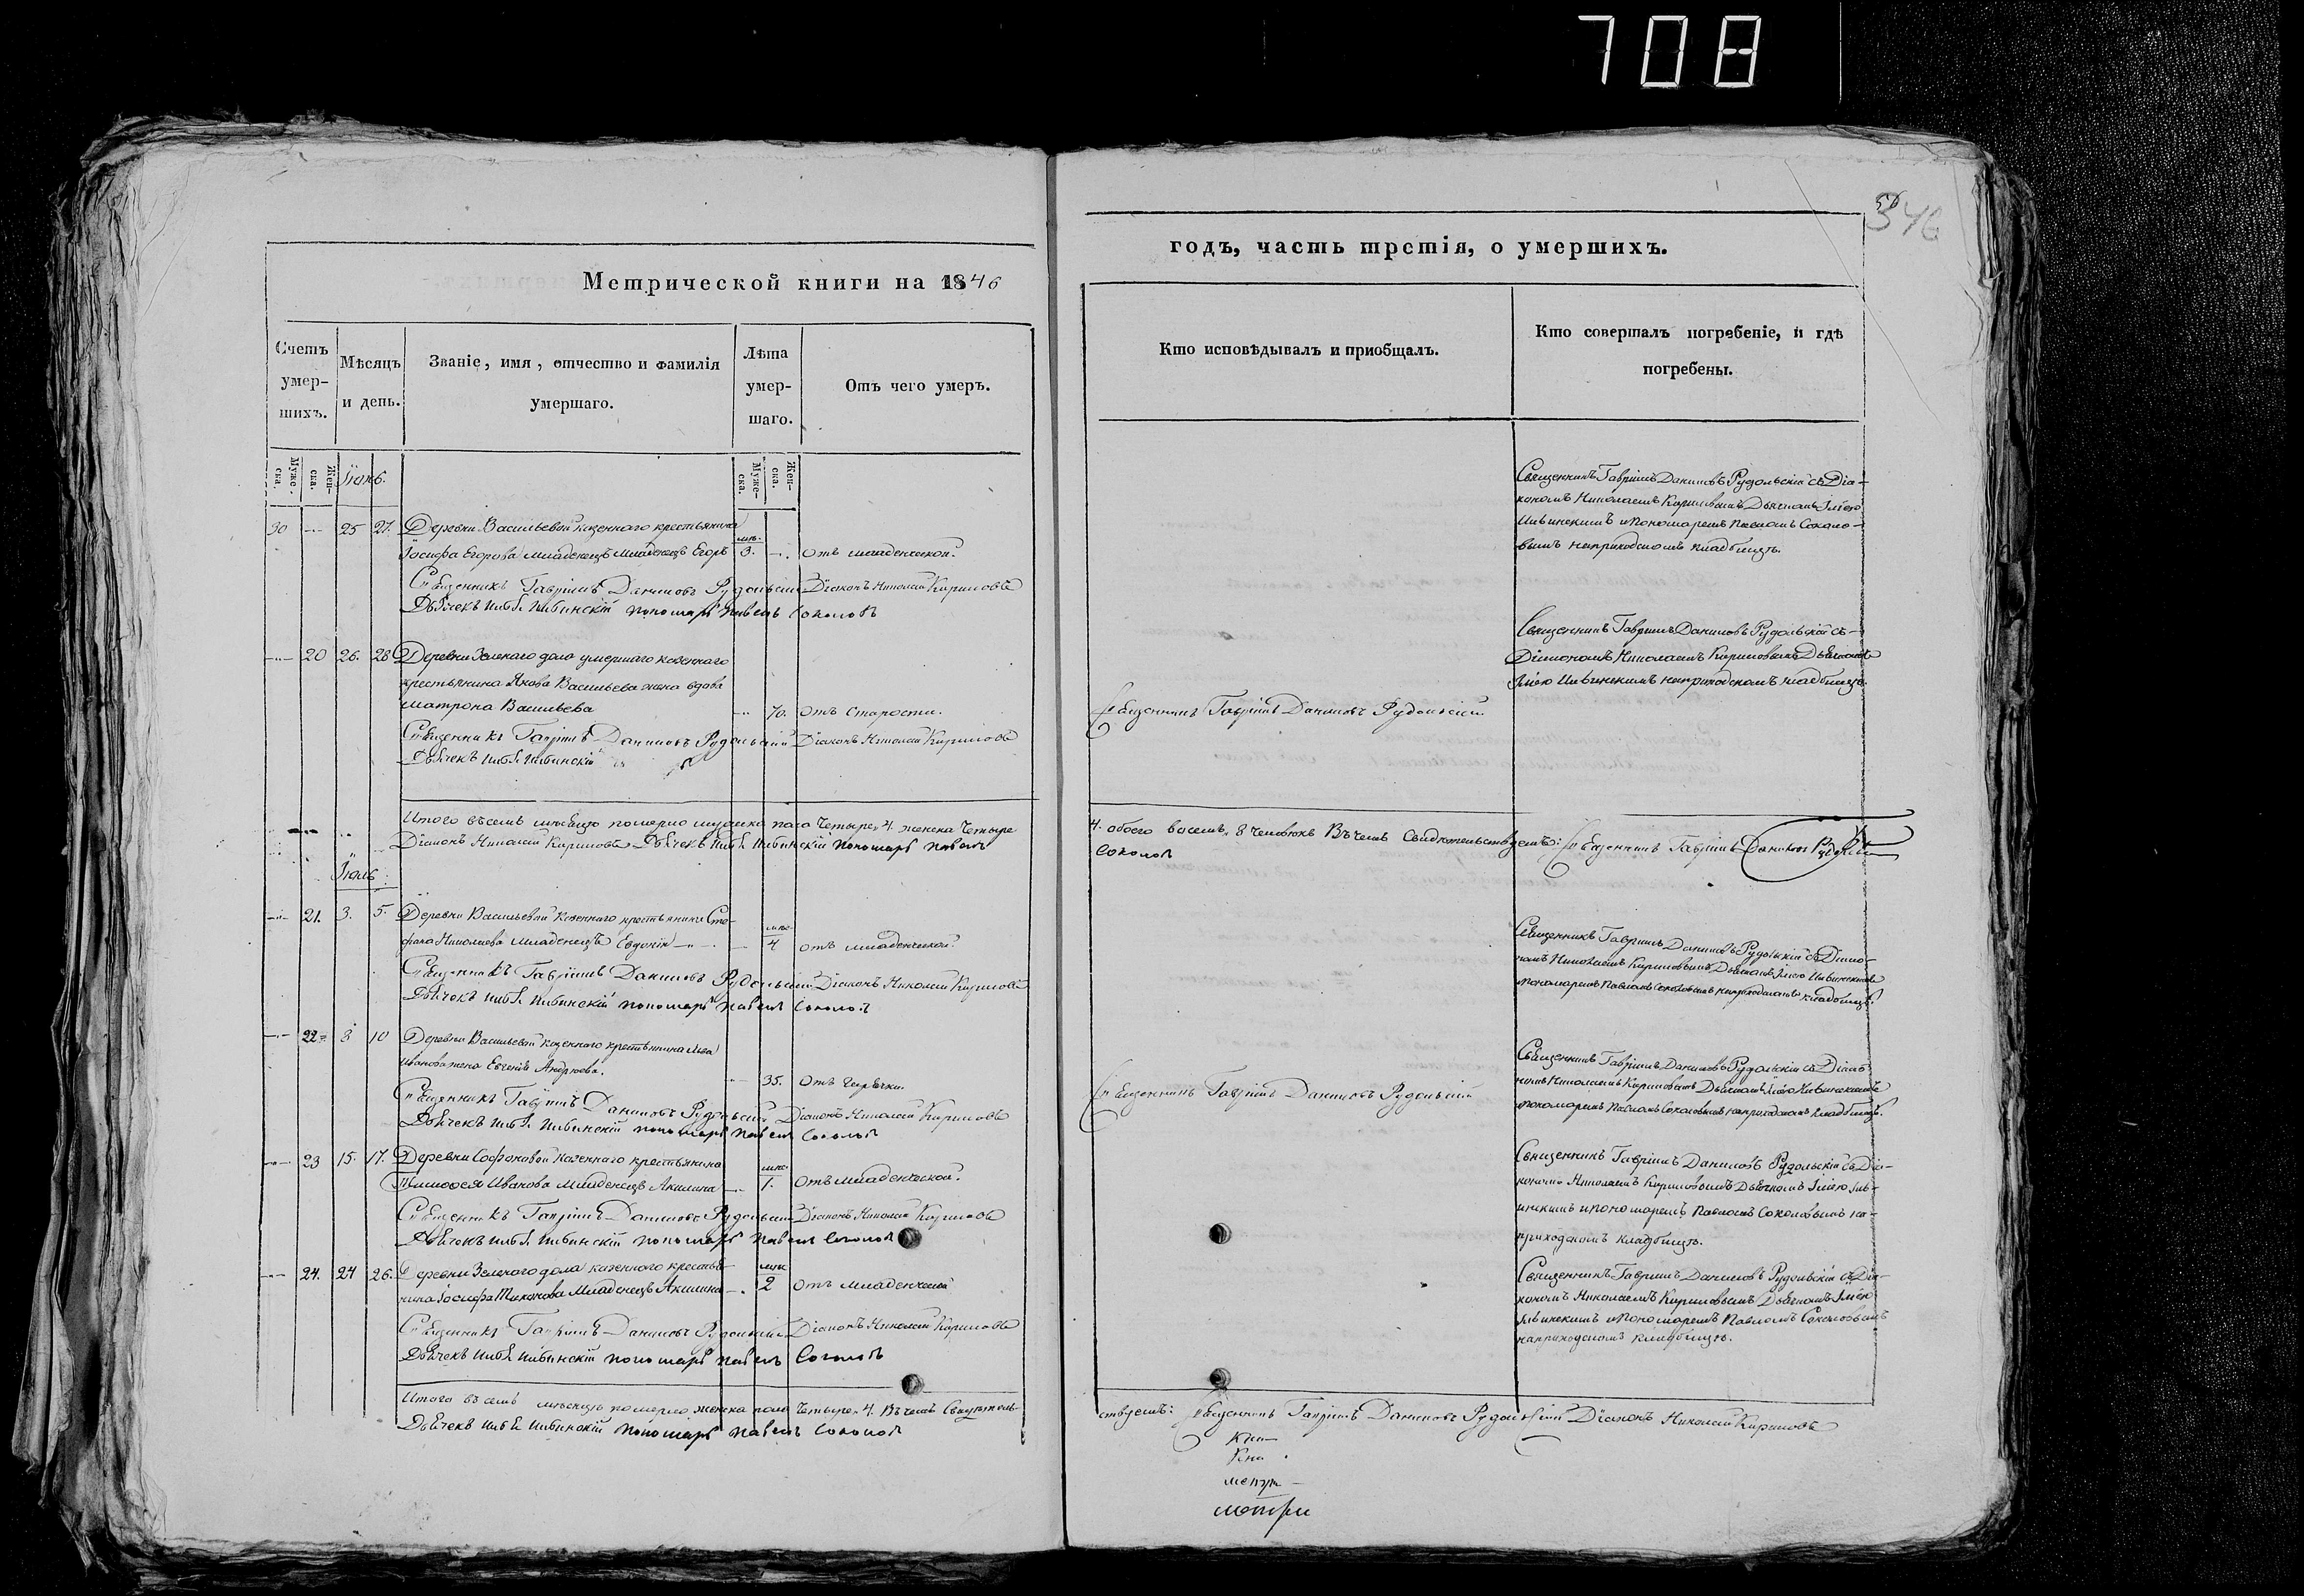 708
346
Метрической книги на 1846
годъ, часть третія, о умершихъ.
Счетъ умер-шихъ.
Мѣсяцъ и день.
Званіе, имя, отчество и фамилія умершаго.
Лѣта умер-шаго.
Отъ чего умеръ.
Кто исповѣдывалъ и пріобщалъ.
Кто совершалъ погребеніе, и гдѣ погребены.
Муже-ска.
Жен-ска.
Іюнь.
Муже-ска.
Жен-ска.
30 25 27. Деревни Васильевой казеннаго крестьянина
Іосифа Егорова младенецъ младенецъ Егоръ 3. отъ младенческой.
Священникъ Гавріилъ Даниловъ Рудольскій Діаконъ Николай Кириловъ
Дьячекъ Илья Ильинскій пономарь Павелъ Соколовъ
Священникъ Гавріилъ Даниловъ Рудольскій съ Діа-
кономъ Николаемъ Кириловымъ Дьячкомъ Ильею
Ильинскимъ и Пономаремъ Павломъ Соколо-
вымъ на приходскомъ кладбищѣ.
20 26. 28 Деревни Зеленаго дола умершаго казеннаго
крестьянина Якова Васильева жена вдова
Матрона Васильева 70. отъ старости.
Священникъ Гавріилъ Даниловъ Рудольскій Діаконъ Николай Кириловъ
Дьячекъ Илья Ильинскій
Священникъ Гавріилъ Даниловъ Рудольскій
Священникъ Гавріилъ Даниловъ Рудольскій съ
Діакономъ Николаемъ Кириловымъ Дьячкомъ
Ильею Ильинскимъ на приходскомъ кладбищѣ.
Итого въ семъ мѣсяцѣ померло мужска пола четыре 4. женска четыре
4. обоего восемь 8 человѣкъ Въ чемъ свидѣтельствуемъ: Священникъ Гавріилъ Даниловъ
Діаконъ Николай Кириловъ Дьячекъ Илья Ильинскій пономарь Павелъ
Соколов
Іюль
21. 3. 5. Деревни Васильевой казеннаго крестьянина Сте-
фана Николаева младенецъ Евдокія 4 отъ младенческой.
Священникъ Гавріилъ Даниловъ Рудольскій Діаконъ Николай Кириловъ
Дьячекъ Илья Ильинскій пономарь Павелъ Соколов
Священникъ Гавріилъ Даниловъ Рудольскій съ Діако-
номъ Николаемъ Кириловымъ Дьячкомъ Ильею Ильинскимъ
и пономаремъ Павломъ Соколовымъ на приходскомъ кладбищѣ.
22 8 10 Деревни Васильевой казеннаго крестьянина
Иванова жена Евгенія Андреева. 35. отъ горячки.
Священникъ Гавріилъ Даниловъ Рудольскій Діаконъ Николай Кириловъ
Дьячекъ Илья Ильинскій пономарь Павелъ Соколов
Священникъ Гавріилъ Даниловъ Рудольскій
Священникъ Гавріилъ Даниловъ Рудольскій съ Діако-
номъ Николаемъ Кириловымъ Дьячкомъ Ильею Ильинскимъ
и пономаремъ Павломъ Соколовымъ на приходскомъ кладбищѣ.
23 15. 17. Деревни Софоновой казеннаго крестьянина
Тимофея Иванова младенецъ Акилина 1. отъ младенческой.
Священникъ Гавріилъ Даниловъ Рудольскій Діаконъ Николай Кириловъ
Дьячекъ Илья Ильинскій пономарь Павелъ Соколов
Священникъ Гавріилъ Даниловъ Рудольскій съ Діа-
кономъ Николаемъ Кириловымъ Дьячкомъ Ильею Иль-
инскимъ и пономаремъ Павломъ Соколовымъ на
приходскомъ кладбищѣ.
24. 24 26. Деревни Зеленаго дола казеннаго крестья-
нина Іосифа Тихонова младенецъ Акилина 2 отъ младенческой
Священникъ Гавріилъ Даниловъ Рудольскій Діаконъ Николай Кириловъ
Дьячекъ Илья Ильинскій пономарь Павелъ Соколовъ
Священникъ Гавріилъ Даниловъ Рудольскій съ Діа-
кономъ Николаемъ Кириловымъ Дьячкомъ Ильею
Ильинскимъ и Пономаремъ Павломъ Соколовымъ
на приходскомъ кладбищѣ.
Итого въ семъ мѣсяцѣ померло женска пола четыре 4. Въ чемъ свидѣтель-
ствуемъ: Священникъ Гавріилъ Даниловъ Рудольскій Діаконъ Николай Кириловъ
Дьячекъ Илья Ильинскій пономарь Павелъ Соколов
Кни
метри